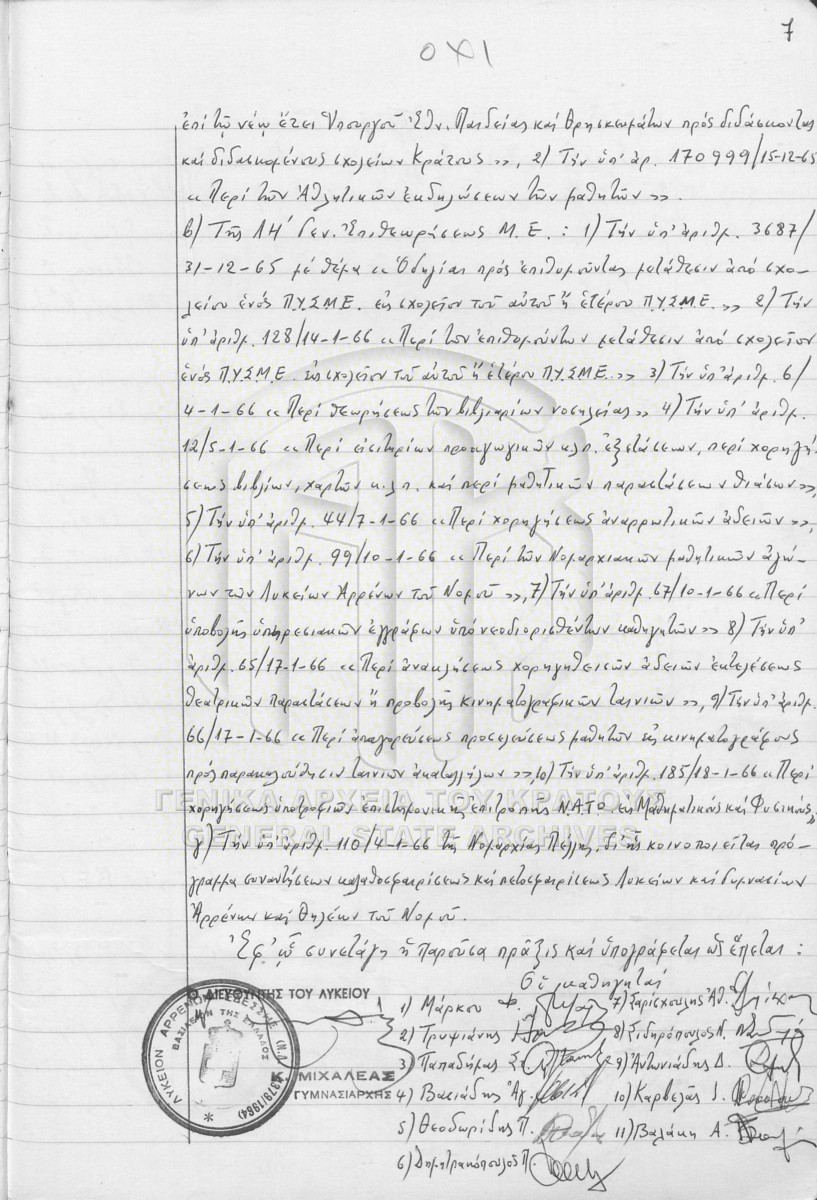 7
ΟΧΙ
ἐπί τῷ νέῳ ἔτει Ὑπουργοῦ Ἐθν. Παιδείας καί Θρησκευμάτων πρός διδάσκοντας
καί διδασκομένους σχολείων Κράτους », 2) Τήν ὑπ' ἀρ. 170999/15-12-65
« Περί τῶν Ἀθλητικῶν ἐκδηλώσεων τῶν μαθητῶν ».
β) Τῆς ΛΗ' Γεν. Ἐπιθεωρήσεως Μ. Ε. : 1) Τήν ὑπ' ἀριθμ. 3687/
31-12-65 μέ θέμα « Ὁδηγίαι πρός ἐπιθυμοῦντας μετάθεσιν ἀπό σχο-
λείου ἑνός Π.Υ.Σ.Μ.Ε. εἰς σχολεῖον τοῦ αὐτοῦ ἤ ἑτέρου Π.Υ.Σ.Μ.Ε. » 2) Τήν
ὑπ' ἀριθμ. 128/14-1-66 « Περί τῶν ἐπιθυμούντων μετάθεσιν ἀπό σχολεῖον
ἑνός Π.Υ.Σ.Μ.Ε. εἰς σχολεῖον τοῦ αὐτοῦ ἤ ἑτέρου Π.Υ.Σ.Μ.Ε. » 3) Τήν ὑπ' ἀριθμ. 6/
4-1-66 « Περί θεωρήσεως τῶν βιβλιαρίων νοσηλείας » 4) Τήν ὑπ' ἀριθμ.
12/5-1-66 « Περί εἰσιτηρίων προαγωγικῶν κ.λ.π. ἐξετάσεων, περί χορηγή-
σεως βιβλίων, χαρτῶν κ.λ.π. καί περί μαθητικῶν παραστάσεων θιάσων »,
5) Τήν ὑπ' ἀριθμ. 44/7-1-66 « Περί χορηγήσεως ἀναρρωτικῶν ἀδειῶν »,
6) Τήν ὑπ' ἀριθμ. 99/10-1-66 « Περί τῶν Νομαρχιακῶν μαθητικῶν ἀγώ-
νων τῶν Λυκείων Ἀρρένων τοῦ Νομοῦ », 7) Τήν ὑπ' ἀριθμ. 67/10-1-66 « Περί
ὑποβολῆς ὑπηρεσιακῶν ἐγγράφων ὑπό νεοδιορισθέντων καθηγητῶν » 8) Τήν ὑπ'
ἀριθμ. 65/17-1-66 « Περί ἀνακλήσεως χορηγηθεισῶν ἀδειῶν ἐκτελέσεως
θεατρικῶν παραστάσεων ἤ προβολῆς κινηματογραφικῶν ταινιῶν », 9) Τήν ὑπ' ἀριθμ.
66/17-1-66 « Περί ἀπαγορεύσεως προσελεύσεως μαθητῶν εἰς κινηματογράφους
πρός παρακολούθησιν ταινιῶν ἀκαταλλήλων » 10) Τήν ὑπ' ἀριθμ. 185/18-1-66 « Περί
χορηγήσεως ὑποτροφιῶν ἐπιστημονικῆς ἐπιτροπῆς Ν.Α.Τ.Ο. εἰς Μαθηματικούς καί Φυσικούς »
γ) Τήν ὑπ' ἀριθμ. 110/4-1-66 τῆς Νομαρχίας Πέλλης, δι' ἧς κοινοποιεῖται πρό-
γραμμα συναντήσεων καλαθοσφαιρίσεως καί πετοσφαιρίσεως Λυκείων καί Γυμνασίων
Ἀρρένων καί Θηλέων τοῦ Νομοῦ.
Ἐφ' ᾧ συνετάγη ἡ παροῦσα πρᾶξις καί ὑπογράφεται ὡς ἕπεται :
ΓΕΝΙΚΑ ΑΡΧΕΙΑ ΤΟΥ ΚΡΑΤΟΥΣ
GENERAL STATE ARCHIVES
Ο ΔΙΕΥΘΥΝΤΗΣ ΤΟΥ ΛΥΚΕΙΟΥ
Κ. ΜΙΧΑΛΕΑΣ
ΓΥΜΝΑΣΙΑΡΧΗΣ
ΛΥΚΕΙΟΝ ΑΡΡΕΝΩΝ ΕΔΕΣΣΗΣ (Ν.Δ. 4379/1964)
ΒΑΣΙΛΕΙΟΝ ΤΗΣ ΕΛΛΑΔΟΣ
Οἱ καθηγηταί
1) Μάρκου Φ.
2) Τρυψιάνης
3) Παπαδήμας Σ
4) Βακιάδης Ἀγ.
5) Θεοδωρίδης Π.
6) Δημητρακόπουλος Π.
7) Σαρίσχουλης Ἀθ.
8) Σιδηρόπουλος Ν.
9) Ἀντωνιάδης Δ.
10) Καρβελᾶς Ι.
11) Βαλάκη Α.